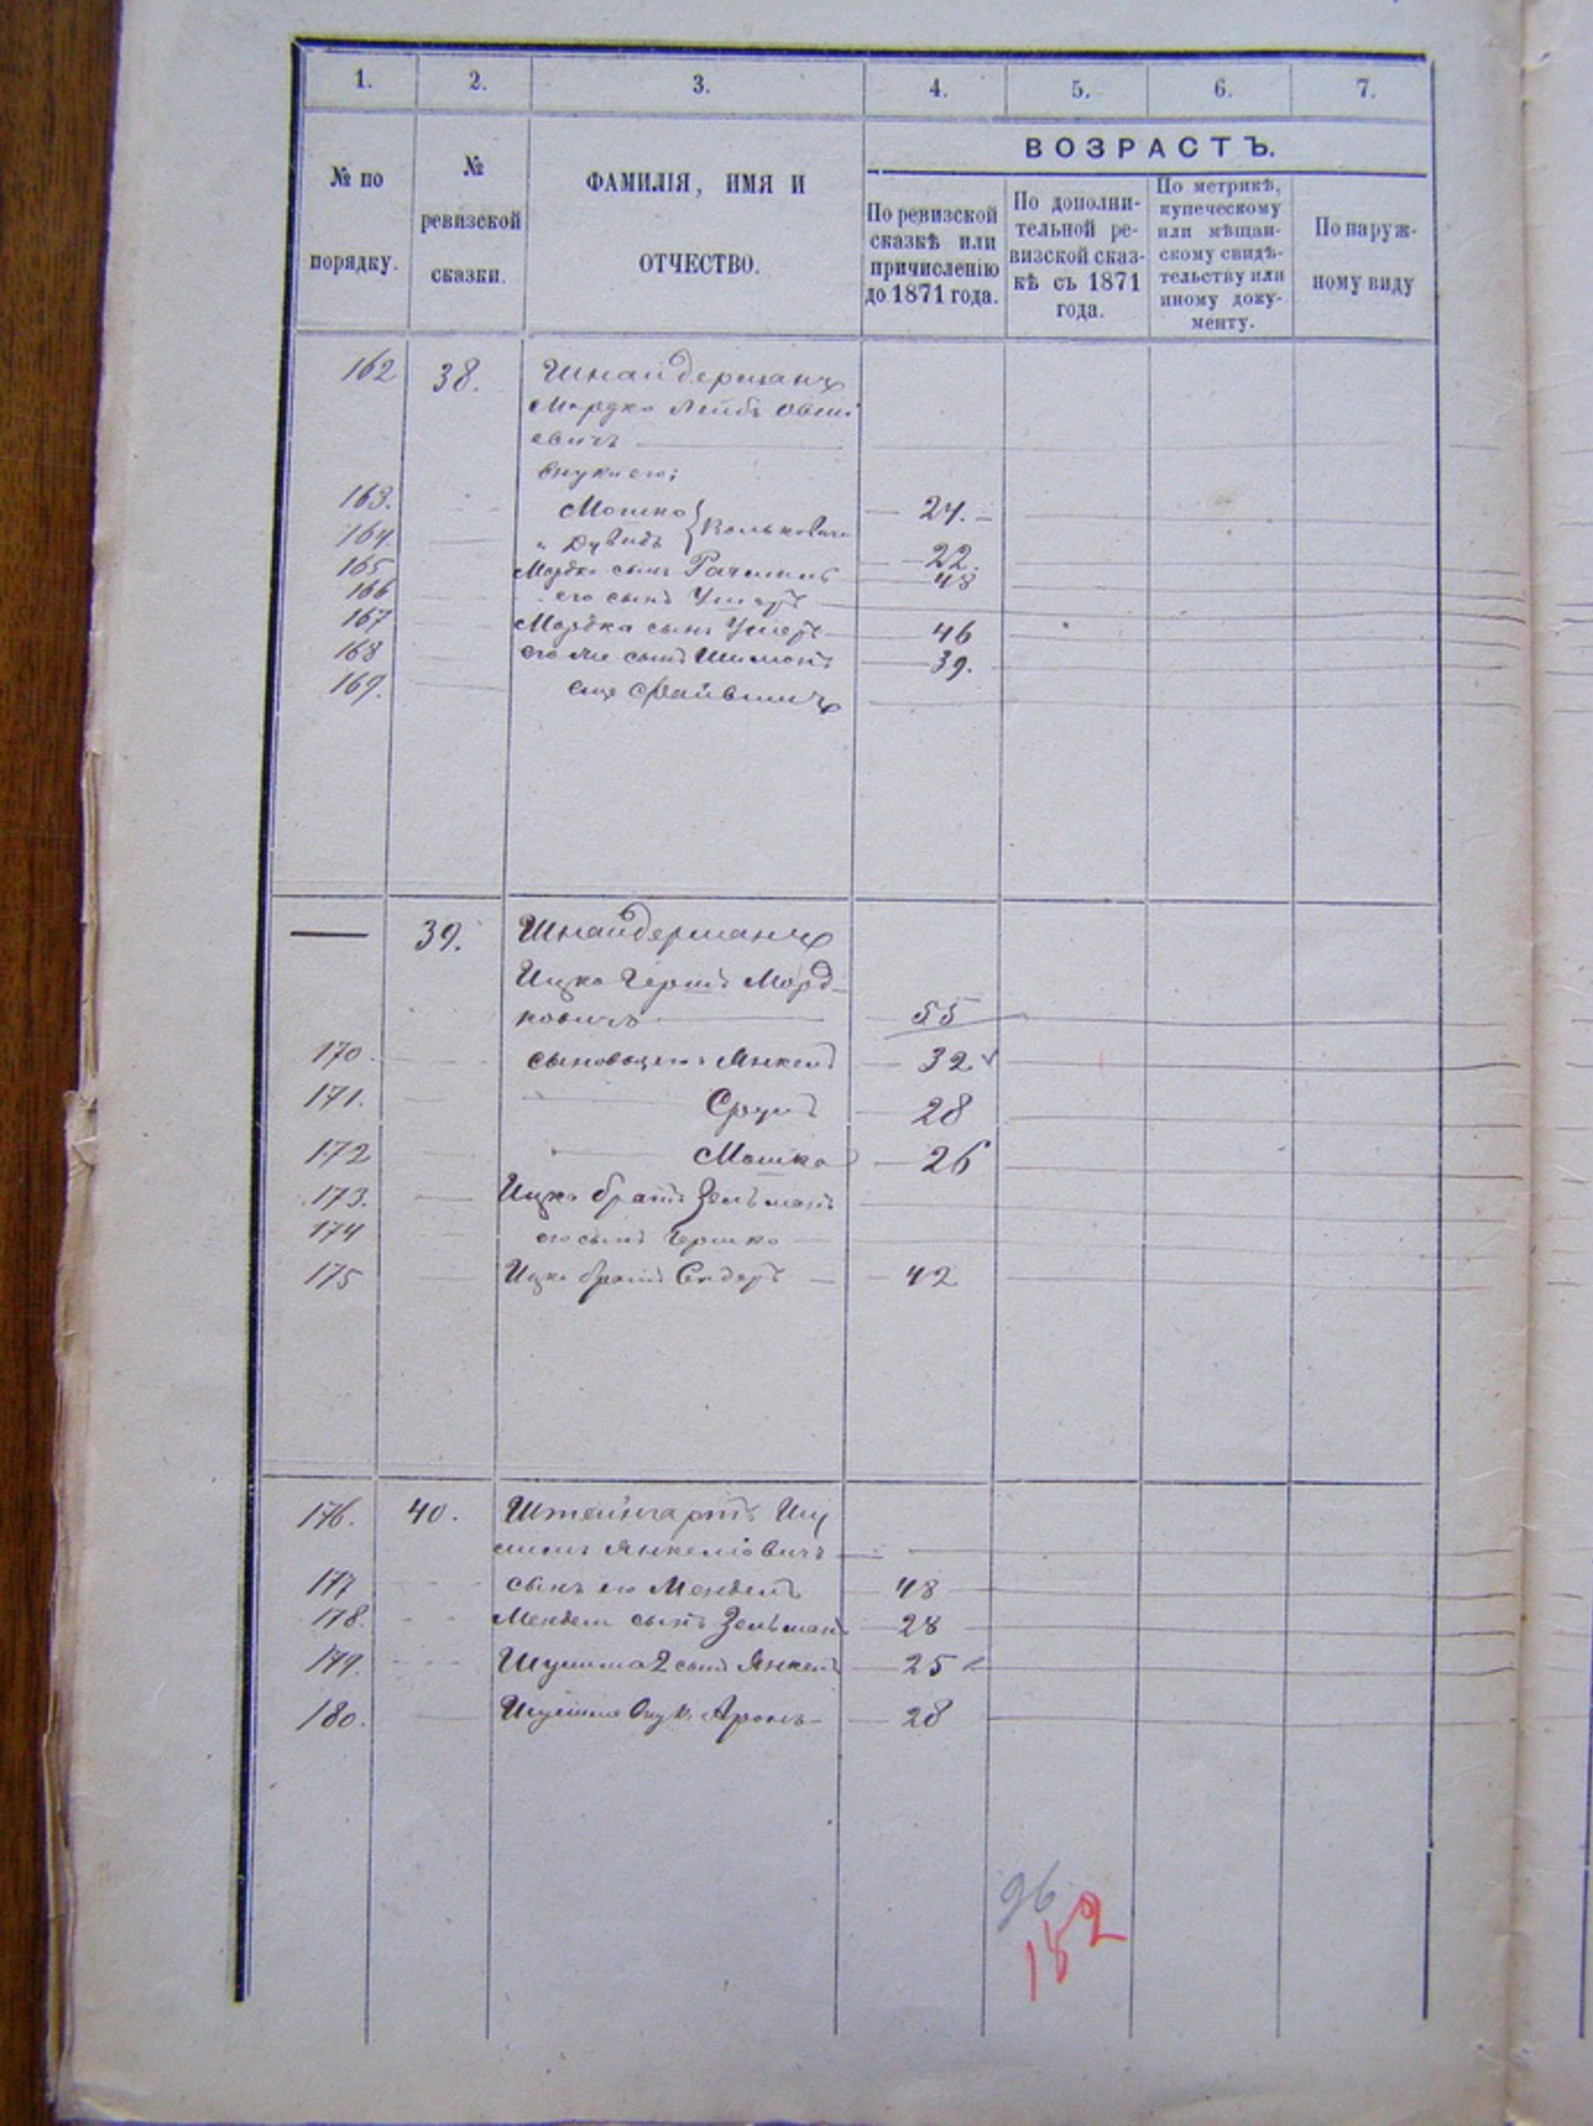 1. 2. 3. 4. 5. 6. 7.
№ по порядку.
№ ревизской сказки.
ФАМИЛІЯ, ИМЯ И ОТЧЕСТВО.
ВОЗРАСТЪ.
По ревизской сказкѣ или причисленію до 1871 года.
По дополни-
тельной ре-
визской сказ-
кѣ съ 1871
года.
По метрикѣ,
купеческому
или мѣщан-
скому свидѣ-
тельству или
иному доку-
менту.
По наруж-
ному виду
162 38. Шнайдерманъ
Мордко Лейбъ Овши
евичъ
внуки его:
163. Мошко 24.
164. " Дувидъ Вольковичи 22.
165 Мордко сынъ 48
166 его сынъ Ушеръ
167 Мордка сынъ Ушеръ 46
168 его же сынъ Шимонъ 39.
169. еще Файвишъ
39. Шнайдерманъ
Ицко Гершъ Морд-
ковичъ 55
170. сыновья его Янкель 32
171. Сруль 28
172 Мошко 26
173. Ицка братъ Зельманъ
174 его сынъ Гершко
175 Ицка братъ Сендеръ 42
176. 40. Штейнгартъ Шу
лимъ Янкеліовичъ
177 сынъ его Мендель 48
178. Менделя сынъ Зельманъ 28
179. Шулима 2 сынъ Янкель 25
180. Шулима внукъ Аронъ 28
96
182